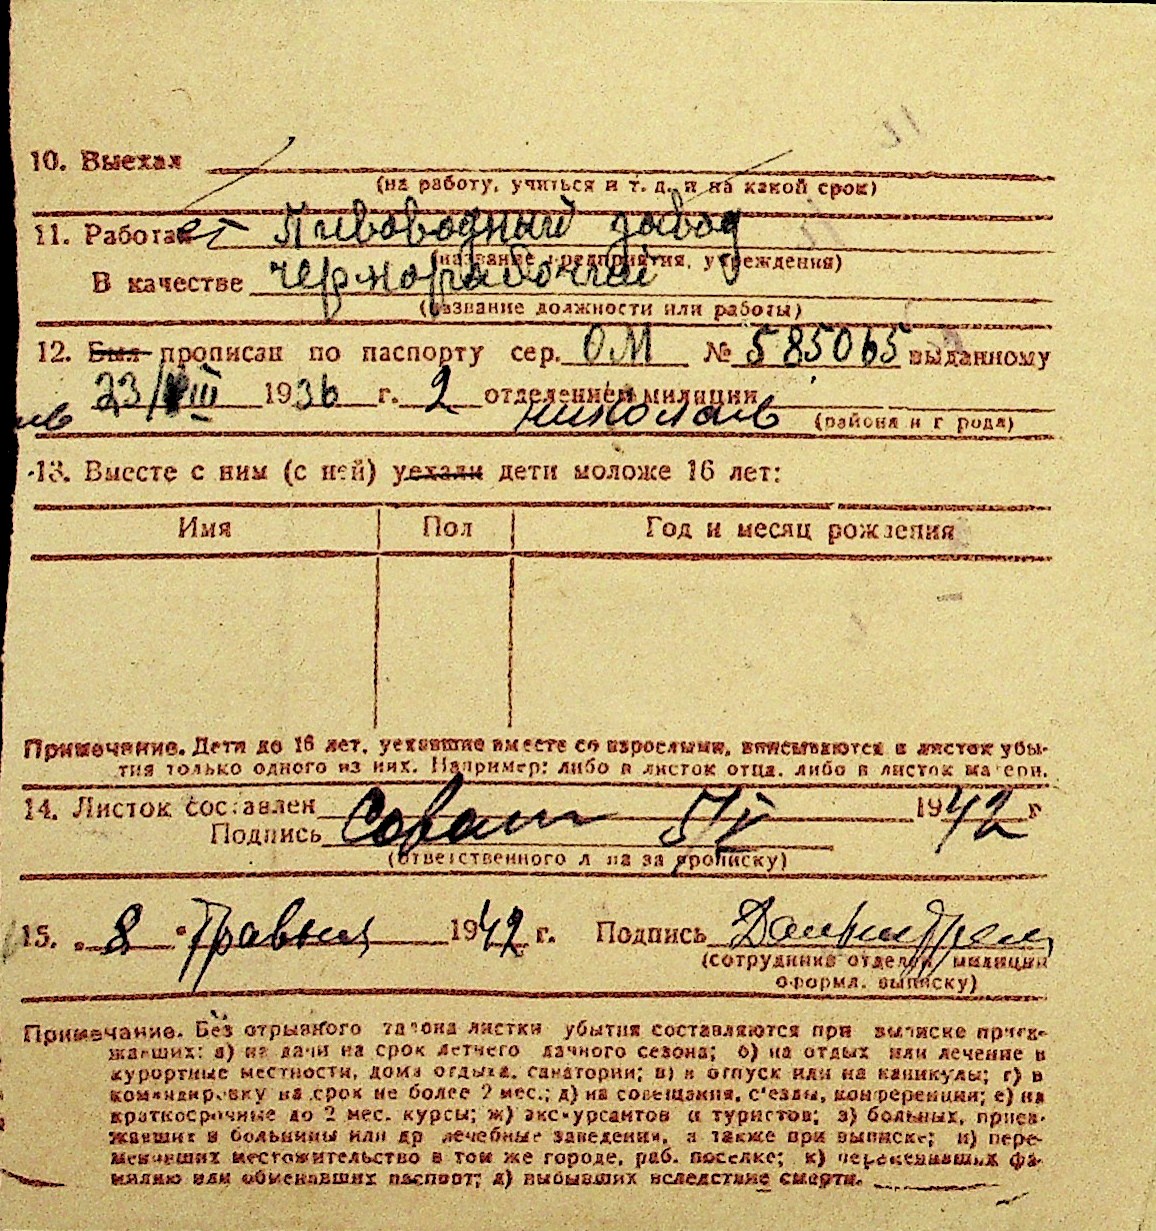 10. Выехал
(на работу, учиться и т. д. и на какой срок)
11. Работает Пивоводный завод
(название предприятия, учреждения)
В качестве чернорабочий
(название должности или работы)
12. Был прописан по паспорту сер. ОМ № 585065 выданному
23/VIII 1936 г. 2 отделением милиции
николаев
(района и города)
13. Вместе с ним (с ней) уехали дети моложе 16 лет:
Имя Пол Год и месяц рождения
Примечание. Дети до 16 лет, уехавшие вместе со взрослыми, вписываются в листок убы-
тия только одного из них. Например: либо в листок отца, либо в листок матери.
14. Листок составлен 5/V 1942 г
Подпись
(ответственного л на за прописку)
15. „8“ Травня 1942 г. Подпись
(сотрудника отделен. милиции
оформл. выписку)
Примечание. Без отрывного талона листки убытия составляются при выписке приез-
жавших: а) на дачи на срок летнего дачного сезона; б) на отдых или лечение в
курортные местности, дома отдыха, санатории; в) в отпуск или на каникулы; г) в
командировку на срок не более 2 мес.; д) на совещания, с'езды, конференции; е) на
краткосрочные до 2 мес. курсы; ж) экскурсантов и туристов; з) больных, приез-
жавших в больницы или др лечебные заведения, а также при выписке; и) пере-
менивших местожительство в том же городе, раб. поселке; к) переменивших фа-
милию или обменявших паспорт; л) выбывших вследствие смерти.